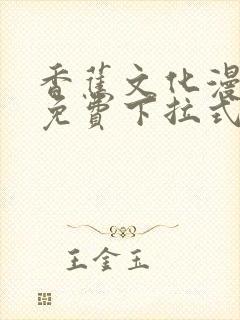 香蕉文化漫
免費下拉式
王金玉